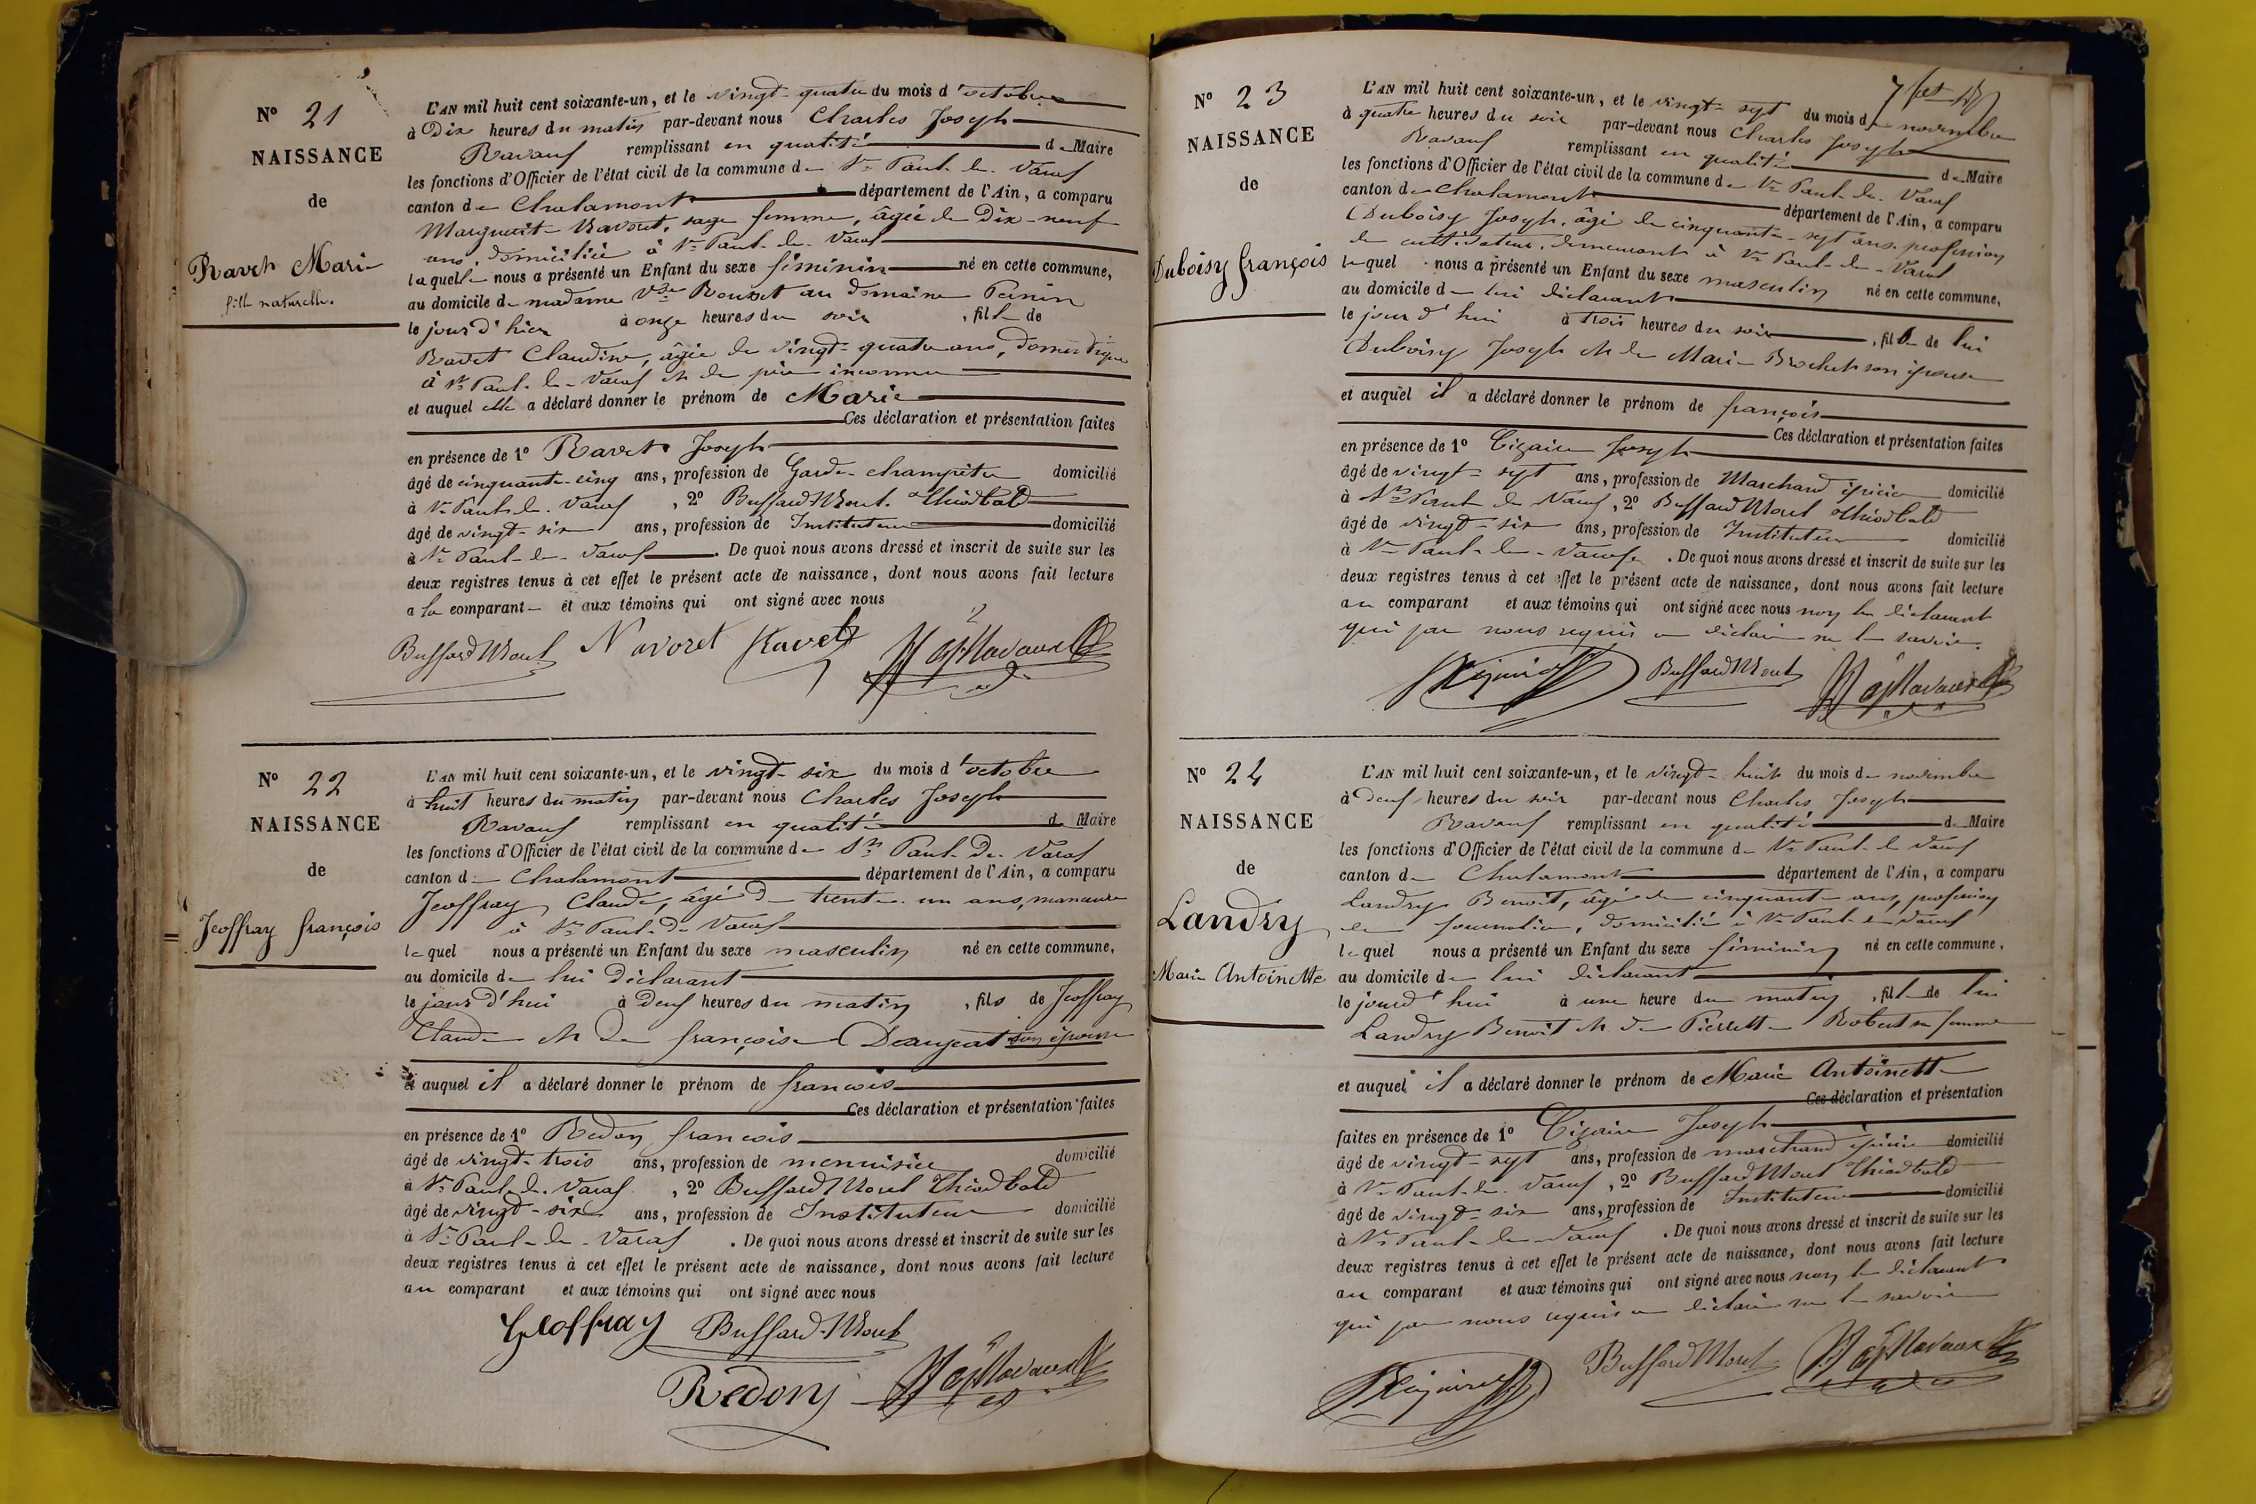 N° 21
NAISSANCE
de
Ravet Marie
fille naturelle.
L'AN mil huit cent soixante-un, et le vingt-quatre du mois d'octobre
à Dix heures du matin par-devant nous Charles Joseph
Ravaux remplissant en qualité de Maire
les fonctions d'Officier de l'état civil de la commune de St Paul-de-Varax
canton de Chalamont département de l'Ain, a comparu
Marguerite Navoret, sage femme, âgée de Dix-neuf
ans, domiciliée à St Paul-de-Varax
laquelle nous a présenté un Enfant du sexe féminin né en cette commune,
au domicile de madame Vve Rousset au domaine
le jour d'hier à onze heures du soir, fille de
Ravet Claudine, âgée de vingt-quatre ans, domestique
à St Paul-de-Varax et de père inconnu
et auquel elle a déclaré donner le prénom de Marie
Ces déclaration et présentation faites
en présence de 1° Ravet Joseph
âgé de cinquante-cinq ans, profession de Garde-champêtre domicilié
à St Paul-de-Varax, 2° Buffard Morel Théodbald
âgé de vingt-six ans, profession de Instituteur domicilié
à St Paul-de-Varax. De quoi nous avons dressé et inscrit de suite sur les
deux registres tenus à cet effet le présent acte de naissance, dont nous avons fait lecture
a la comparante et aux témoins qui ont signé avec nous
Buffard Morel Navoret Ravet
N° 22
NAISSANCE
de
Jeoffray françois
L'AN mil huit cent soixante-un, et le vingt-six du mois d'octobre
à huit heures du matin par-devant nous Charles Joseph
Ravaux remplissant en qualité de Maire
les fonctions d'Officier de l'état civil de la commune de St Paul-de-Varax
canton de Chalamont département de l'Ain, a comparu
Jeoffray Claude, âgé de trente-un ans, manœuvre
à St Paul-de-Varax
lequel nous a présenté un Enfant du sexe masculin né en cette commune,
au domicile de lui déclarant
le jour d'hui à deux heures du matin, fils de Jeoffray
Claude et de françoise son épouse
et auquel il a déclaré donner le prénom de françois
Ces déclaration et présentation faites
en présence de 1° Redon françois
âgé de vingt-trois ans, profession de menuisier domicilié
à St Paul-de-Varax, 2° Buffard Morel Théodbald
âgé de vingt-six ans, profession de Instituteur domicilié
à St Paul-de-Varax. De quoi nous avons dressé et inscrit de suite sur les
deux registres tenus à cet effet le présent acte de naissance, dont nous avons fait lecture
au comparant et aux témoins qui ont signé avec nous
Geoffray Buffard-Morel
Redon
N° 23
NAISSANCE
de
Duboisy françois
L'AN mil huit cent soixante-un, et le vingt-sept du mois de novembre
à quatre heures du soir par-devant nous Charles Joseph
Ravaux remplissant en qualité de Maire
les fonctions d'Officier de l'état civil de la commune de St Paul-de-Varax
canton de Chalamont département de l'Ain, a comparu
Duboisy Joseph, âgé de cinquante-sept ans, profession
de cultivateur, demeurant à St Paul-de-Varax
lequel nous a présenté un Enfant du sexe masculin né en cette commune,
au domicile de lui déclarant
le jour d'hui à trois heures du soir, fils de lui
Duboisy Joseph et de Marie Brochet son épouse
et auquel il a déclaré donner le prénom de françois
Ces déclaration et présentation faites
en présence de 1° Joseph
âgé de vingt-sept ans, profession de Marchand épicier domicilié
à St Paul de Varax, 2° Buffard Morel Théodbald
âgé de vingt-six ans, profession de Instituteur domicilié
à St Paul-de-Varax. De quoi nous avons dressé et inscrit de suite sur les
deux registres tenus à cet effet le présent acte de naissance, dont nous avons fait lecture
au comparant et aux témoins qui ont signé avec nous non le déclarant
qui par nous requis a déclaré ne le savoir.
Buffard Morel
N° 24
NAISSANCE
de
Landry
Marie Antoinette
L'AN mil huit cent soixante-un, et le vingt-huit du mois de novembre
à deux heures du soir par-devant nous Charles Joseph
Ravaux remplissant en qualité de Maire
les fonctions d'Officier de l'état civil de la commune de St Paul-de-Varax
canton de Chalamont département de l'Ain, a comparu
Landry Benoit, âgé de cinquante ans, profession
de journalier, domicilié à St Paul-de-Varax
lequel nous a présenté un Enfant du sexe féminin né en cette commune,
au domicile de lui déclarant
le jourd'hui à une heure du matin, fille de lui
Landry Benoit et de Pierrette Robert sa femme
et auquel il a déclaré donner le prénom de Marie Antoinette
Ces déclaration et présentation
faites en présence de 1° Joseph
âgé de vingt-sept ans, profession de marchand épicier domicilié
à St Paul-de-Varax, 2° Buffard Morel Théodbald
âgé de vingt-six ans, profession de Instituteur domicilié
à St Paul-de-Varax. De quoi nous avons dressé et inscrit de suite sur les
deux registres tenus à cet effet le présent acte de naissance, dont nous avons fait lecture
au comparant et aux témoins qui ont signé avec nous non le déclarant
qui par nous requis a déclaré ne le savoir
Buffard Morel